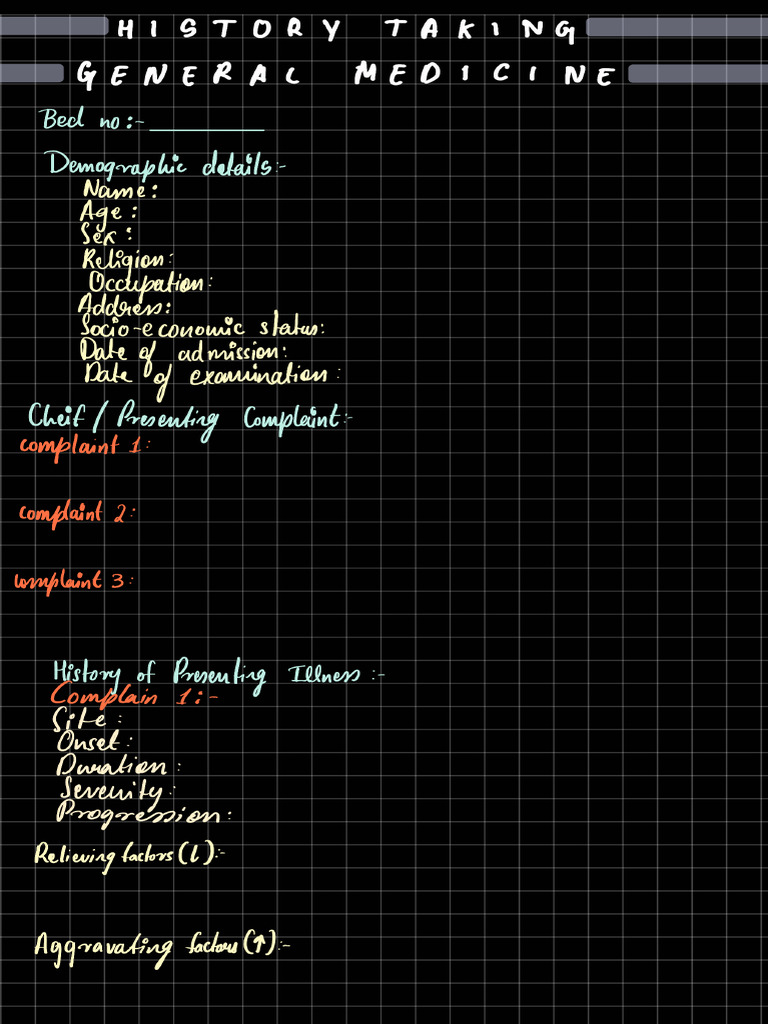 HISTORY TAKING
GENERAL MEDICINE
Bed no:- __________
Demographic details:-
Name:
Age:
Sex:
Religion:
Occupation:
Address:
Socio-economic status:
Date of admission:
Date of examination:
Cheif / Presenting Complaint:-
complaint 1:
complaint 2:
complaint 3:
History of Presenting Illness:-
Complain 1:-
Site:
Onset:
Duration:
Severity:
Progression:
Relieving factors (↓):-
Aggravating factors (↑):-